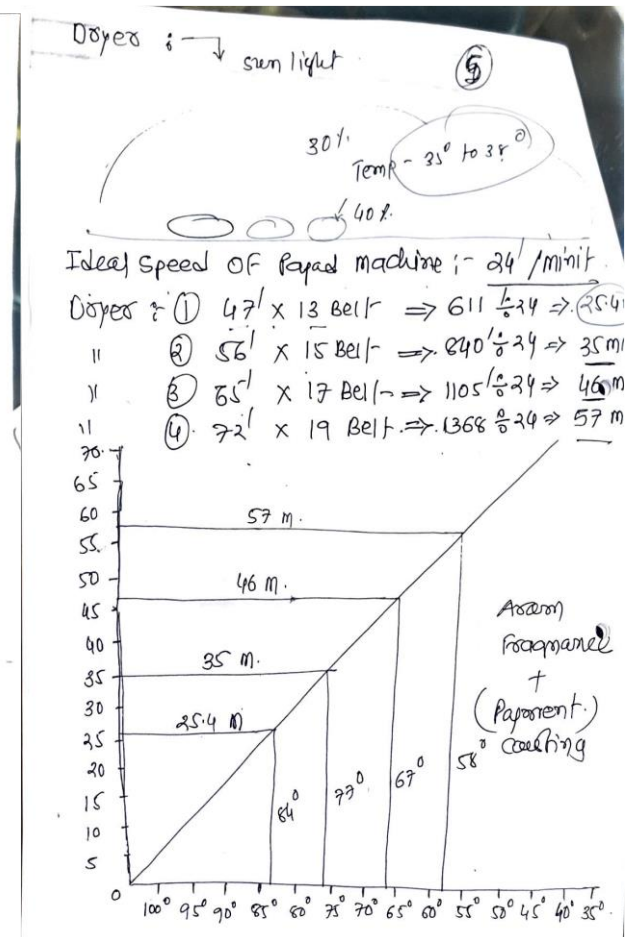 Dryer :- ↓ sun light
⑤
30%.
Temp - 35° to 38°
40%.
Ideal Speed OF Papad Machine :- 24' / minit
Dryer :- ① 47' × 13 Belt ⇒ 611' ÷ 24 ⇒ 25.4
" ② 56' × 15 Belt ⇒ 840' ÷ 24 ⇒ 35 m
" ③ 65' × 17 Belt ⇒ 1105' ÷ 24 ⇒ 46 m
" ④ 72' × 19 Belt ⇒ 1368 ÷ 24 ⇒ 57 m
70
65
60
55
50
45
40
35
30
25
20
15
10
5
0
57 m.
46 m.
35 m.
25.4 m
84°
77°
67°
58°
+
100° 95° 90° 85° 80° 75° 70° 65° 60° 55° 50° 45° 40° 35°